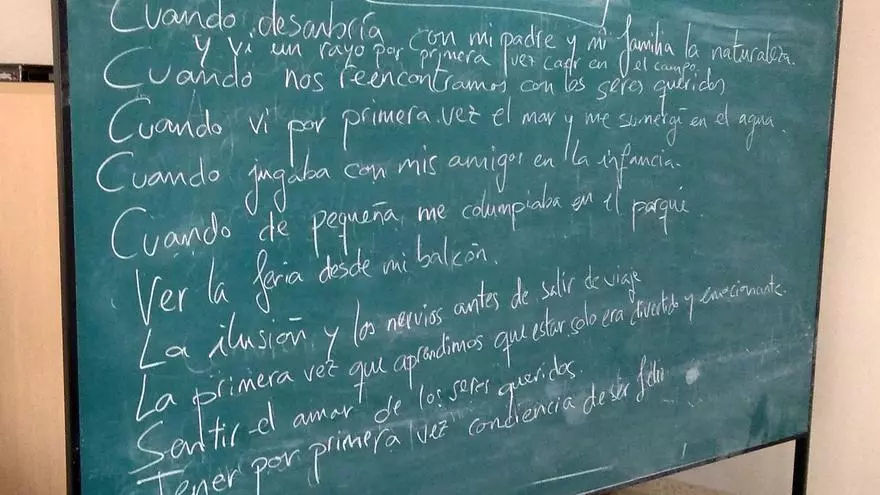 Cuando desanbría con mi padre y mi familia la naturaleza.
y vi un rayo por primera vez caer en el campo.
Cuando nos reencontramos con los seres queridos
Cuando vi por primera vez el mar y me sumergí en el agua.
Cuando jugaba con mis amigos en la infancia.
Cuando de pequeña me columpiaba en el parque.
Ver la feria desde mi balcón.
La ilusión y los nervios antes de salir de viaje
La primera vez que aprendimos que estar solo era divertido y emocionante.
Sentir el amar de los seres queridos.
Tener por primera vez conciencia de ser feliz